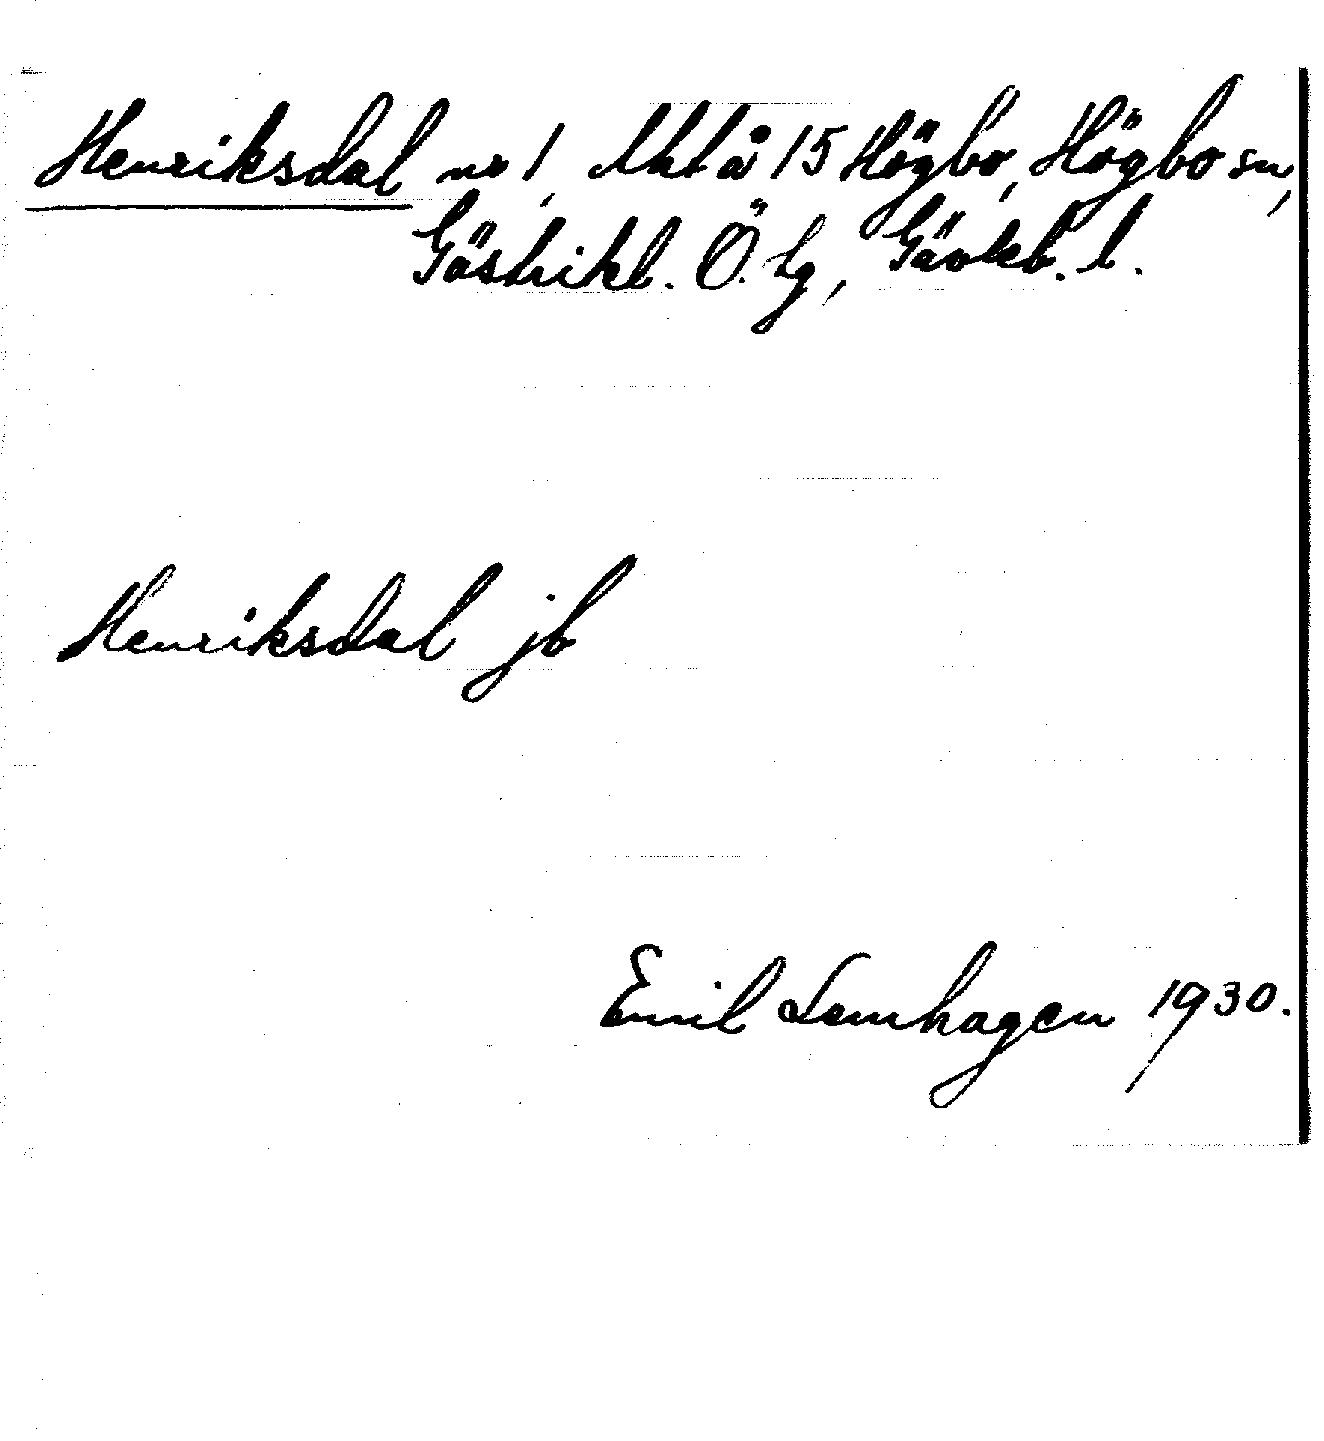 Henriksdal nr 1, Mt å 15 Högbo, Högbo sn,
Gästrikl. Ö. tg, Gävleb. l.
Henriksdal jb
Emil Lemhagen 1930.